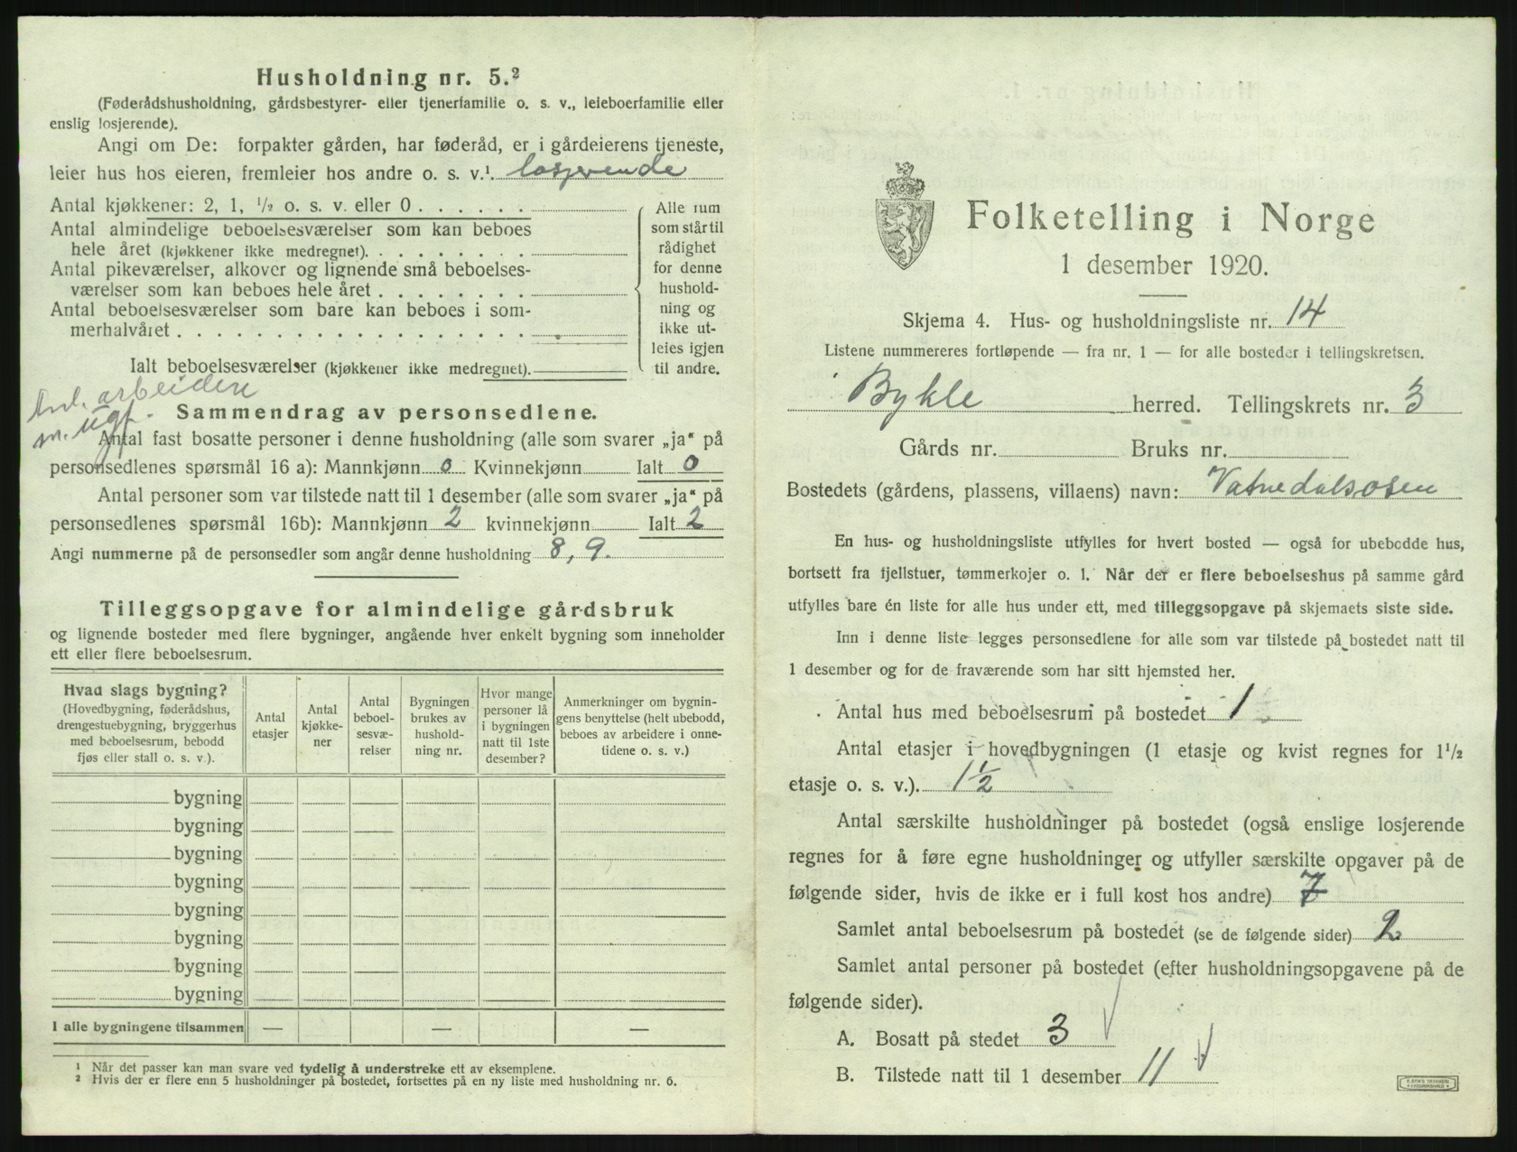 Husholdning nr. 5.²
(Føderådshusholdning, gårdsbestyrer- eller tjenerfamilie o. s. v., leieboerfamilie eller
enslig losjerende).
Angi om De: forpakter gården, har føderåd, er i gårdeierens tjeneste,
leier hus hos eieren, fremleier hos andre o. s. v.¹. losjerende
Antal kjøkkener: 2, 1, ½ o. s. v. eller 0 . . . . . .
Antal almindelige beboelsesværelser som kan beboes
hele året (kjøkkener ikke medregnet). . . . . . . .
Antal pikeværelser, alkover og lignende små beboelses-
værelser som kan beboes hele året . . . . . . . .
Antal beboelsesværelser som bare kan beboes i som-
merhalvåret . . . . . . . . . . . . . . . . .
Ialt beboelsesværelser (kjøkkener ikke medregnet).
Alle rum
som står til
rådighet
for denne
hushold-
ning og
ikke ut-
leies igjen
til andre.
arbeidere
m. ugf.
Sammendrag av personsedlene.
Antal fast bosatte personer i denne husholdning (alle som svarer „ja" på
personsedlenes spørsmål 16 a): Mannkjønn 0 Kvinnekjønn Ialt 0
Antal personer som var tilstede natt til 1 desember (alle som svarer „ja" på
personsedlenes spørsmål 16b): Mannkjønn 2 kvinnekjønn Ialt 2
Angi nummerne på de personsedler som angår denne husholdning 8, 9.
Tilleggsopgave for almindelige gårdsbruk
og lignende bosteder med flere bygninger, angående hver enkelt bygning som inneholder
ett eller flere beboelsesrum.
Hvad slags bygning?
(Hovedbygning, føderådshus,
drengestuebygning, bryggerhus
med beboelsesrum, bebodd
fjøs eller stall o. s. v.).
Antal
etasjer
Antal
kjøkke-
ner
Antal
beboel-
sesvæ-
relser
Bygningen
brukes av
hushold-
ning nr.
Hvor mange
personer lå
i bygningen
natt til 1ste
desember?
Anmerkninger om bygnin-
gens benyttelse (helt ubebodd,
beboes av arbeidere i onne-
tidene o. s. v.)
bygning
bygning
bygning
bygning
bygning
bygning
bygning
bygning
I alle bygningene tilsammen — — —
¹ Når det passer kan man svare ved tydelig å understreke ett av eksemplene.
² Hvis der er flere enn 5 husholdninger på bostedet, fortsettes på en ny liste med husholdning nr. 6.
Folketelling i Norge
1 desember 1920.
Skjema 4. Hus- og husholdningsliste nr. 14
Listene nummereres fortløpende — fra nr. 1 — for alle bosteder i tellingskretsen.
Bykle herred. Tellingskrets nr. 3
Gårds nr. Bruks nr.
Bostedets (gårdens, plassens, villaens) navn: Vatnedalsosen
En hus- og husholdningsliste utfylles for hvert bosted — også for ubebodde hus,
bortsett fra fjellstuer, tømmerkojer o. l. Når der er flere beboelseshus på samme gård
utfylles bare én liste for alle hus under ett, med tilleggsopgave på skjemaets siste side.
Inn i denne liste legges personsedlene for alle som var tilstede på bostedet natt til
1 desember og for de fraværende som har sitt hjemsted her.
Antal hus med beboelsesrum på bostedet 1
Antal etasjer i hovedbygningen (1 etasje og kvist regnes for 1½
etasje o. s. v.). 1½
Antal særskilte husholdninger på bostedet (også enslige losjerende
regnes for å føre egne husholdninger og utfyller særskilte opgaver på de
følgende sider, hvis de ikke er i full kost hos andre) 7
Samlet antal beboelsesrum på bostedet (se de følgende sider) 2
Samlet antal personer på bostedet (efter husholdningsopgavene på de
følgende sider).
A. Bosatt på stedet 3
B. Tilstede natt til 1 desember 11